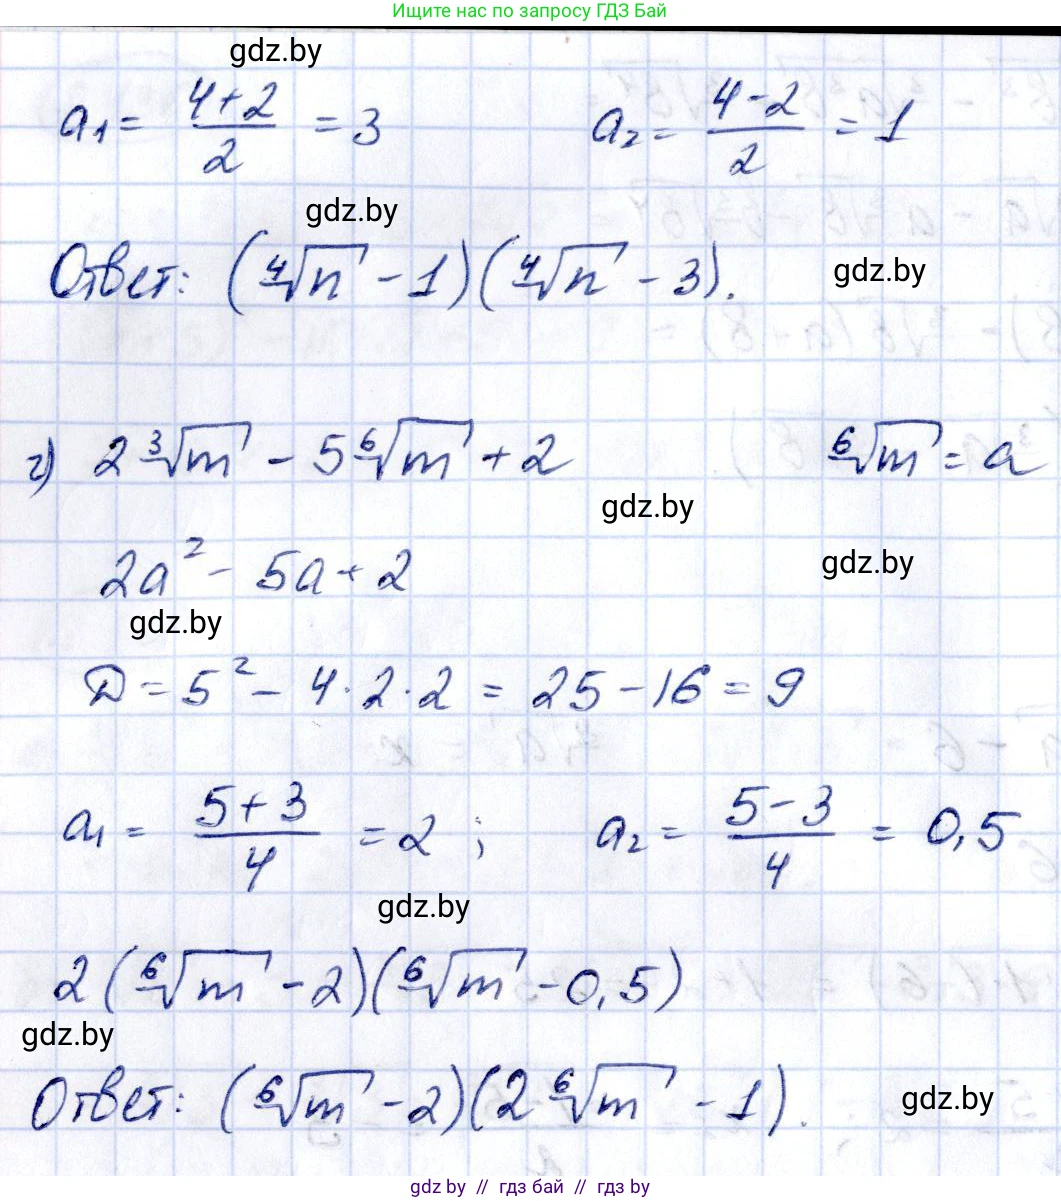 Ищите нас по запросу ГДЗ Бай
gdz.by
a₁ = (4+2)/2 = 3 a₂ = (4-2)/2 = 1
gdz.by
Ответ: (⁴√n - 1)(⁴√n - 3).
gdz.by
г) 2 ³√m - 5 ⁶√m + 2 ⁶√m = a
gdz.by
2a² - 5a + 2
gdz.by
gdz.by
D = 5² - 4·2·2 = 25 - 16 = 9
a₁ = (5+3)/4 = 2 ; a₂ = (5-3)/4 = 0,5
gdz.by
2(⁶√m - 2)(⁶√m - 0,5)
gdz.by
Ответ: (⁶√m - 2)(2 ⁶√m - 1).
gdz.by
gdz by // гдз бай // gdz by